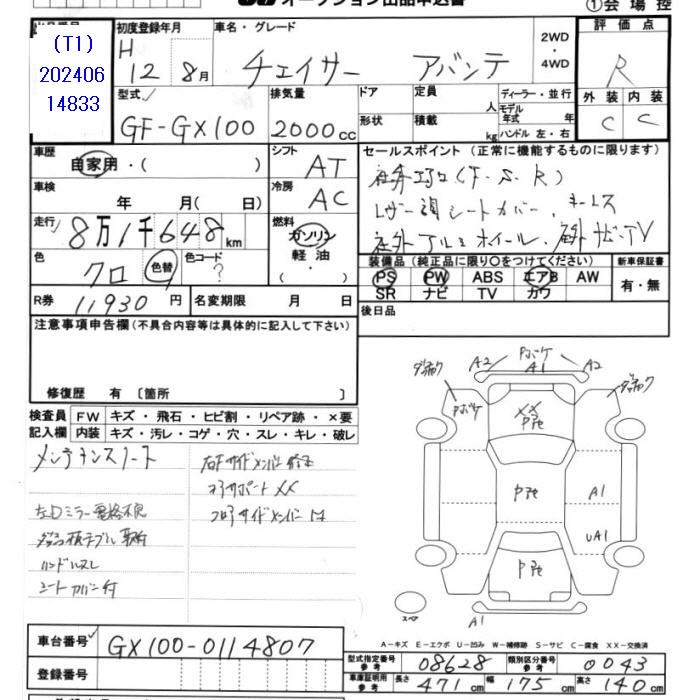 オークション出品申込書
①会場控
(T1)
202406
14833
初度登録年月
H
12年8月
車名・グレード
チェイサー アバンテ
2WD
・
4WD
評価点
R
外装 内装
C C
型式
GF-GX100
排気量
2000cc
ドア
形状
定員 人
積載 kg
ディーラー・並行
モデル
年式 年
ハンドル 左・右
車歴
自家用・( )
シフト
AT
車検
年 月( 日)
冷房
AC
走行
8万1千648km
燃料
ガソリン
・
軽油
色
クロ
色替
色コード
?
R券 11930円
名変期限 月 日
セールスポイント(正常に機能するものに限ります)
社外エアロ(F・S・R)
レザー調シートカバー、キーレス
社外アルミホイール、社外ナビ・TV
装備品(純正品に限り○をつけてください)
PS PW ABS エアB AW
SR ナビ TV カワ
新車保証書
有・無
後日品
注意事項申告欄(不具合内容等は具体的に記入して下さい)
修復歴 有 〔箇所 〕
検査員 FW キズ・飛石・ヒビ割・リペア跡・×要
記入欄 内装 キズ・汚レ・コゲ・穴・スレ・キレ・破レ
メンテナンスノート
左Dミラー電格不良
ハンドルスレ
右Fサイドメンバー修正
コアサポートXX
A2 A1 A2
XX
Pйt
A1
UA1
A1
スペア
A-キズ E-エクボ U-凹み W-補修跡 S-サビ C-腐食 XX-交換済
車台番号 GX100-0114807
登録番号
型式指定番号
参考
08628
類別区分番号
参考
0043
車庫証明用
参考
長さ 471cm 幅 175cm 高さ 140cm